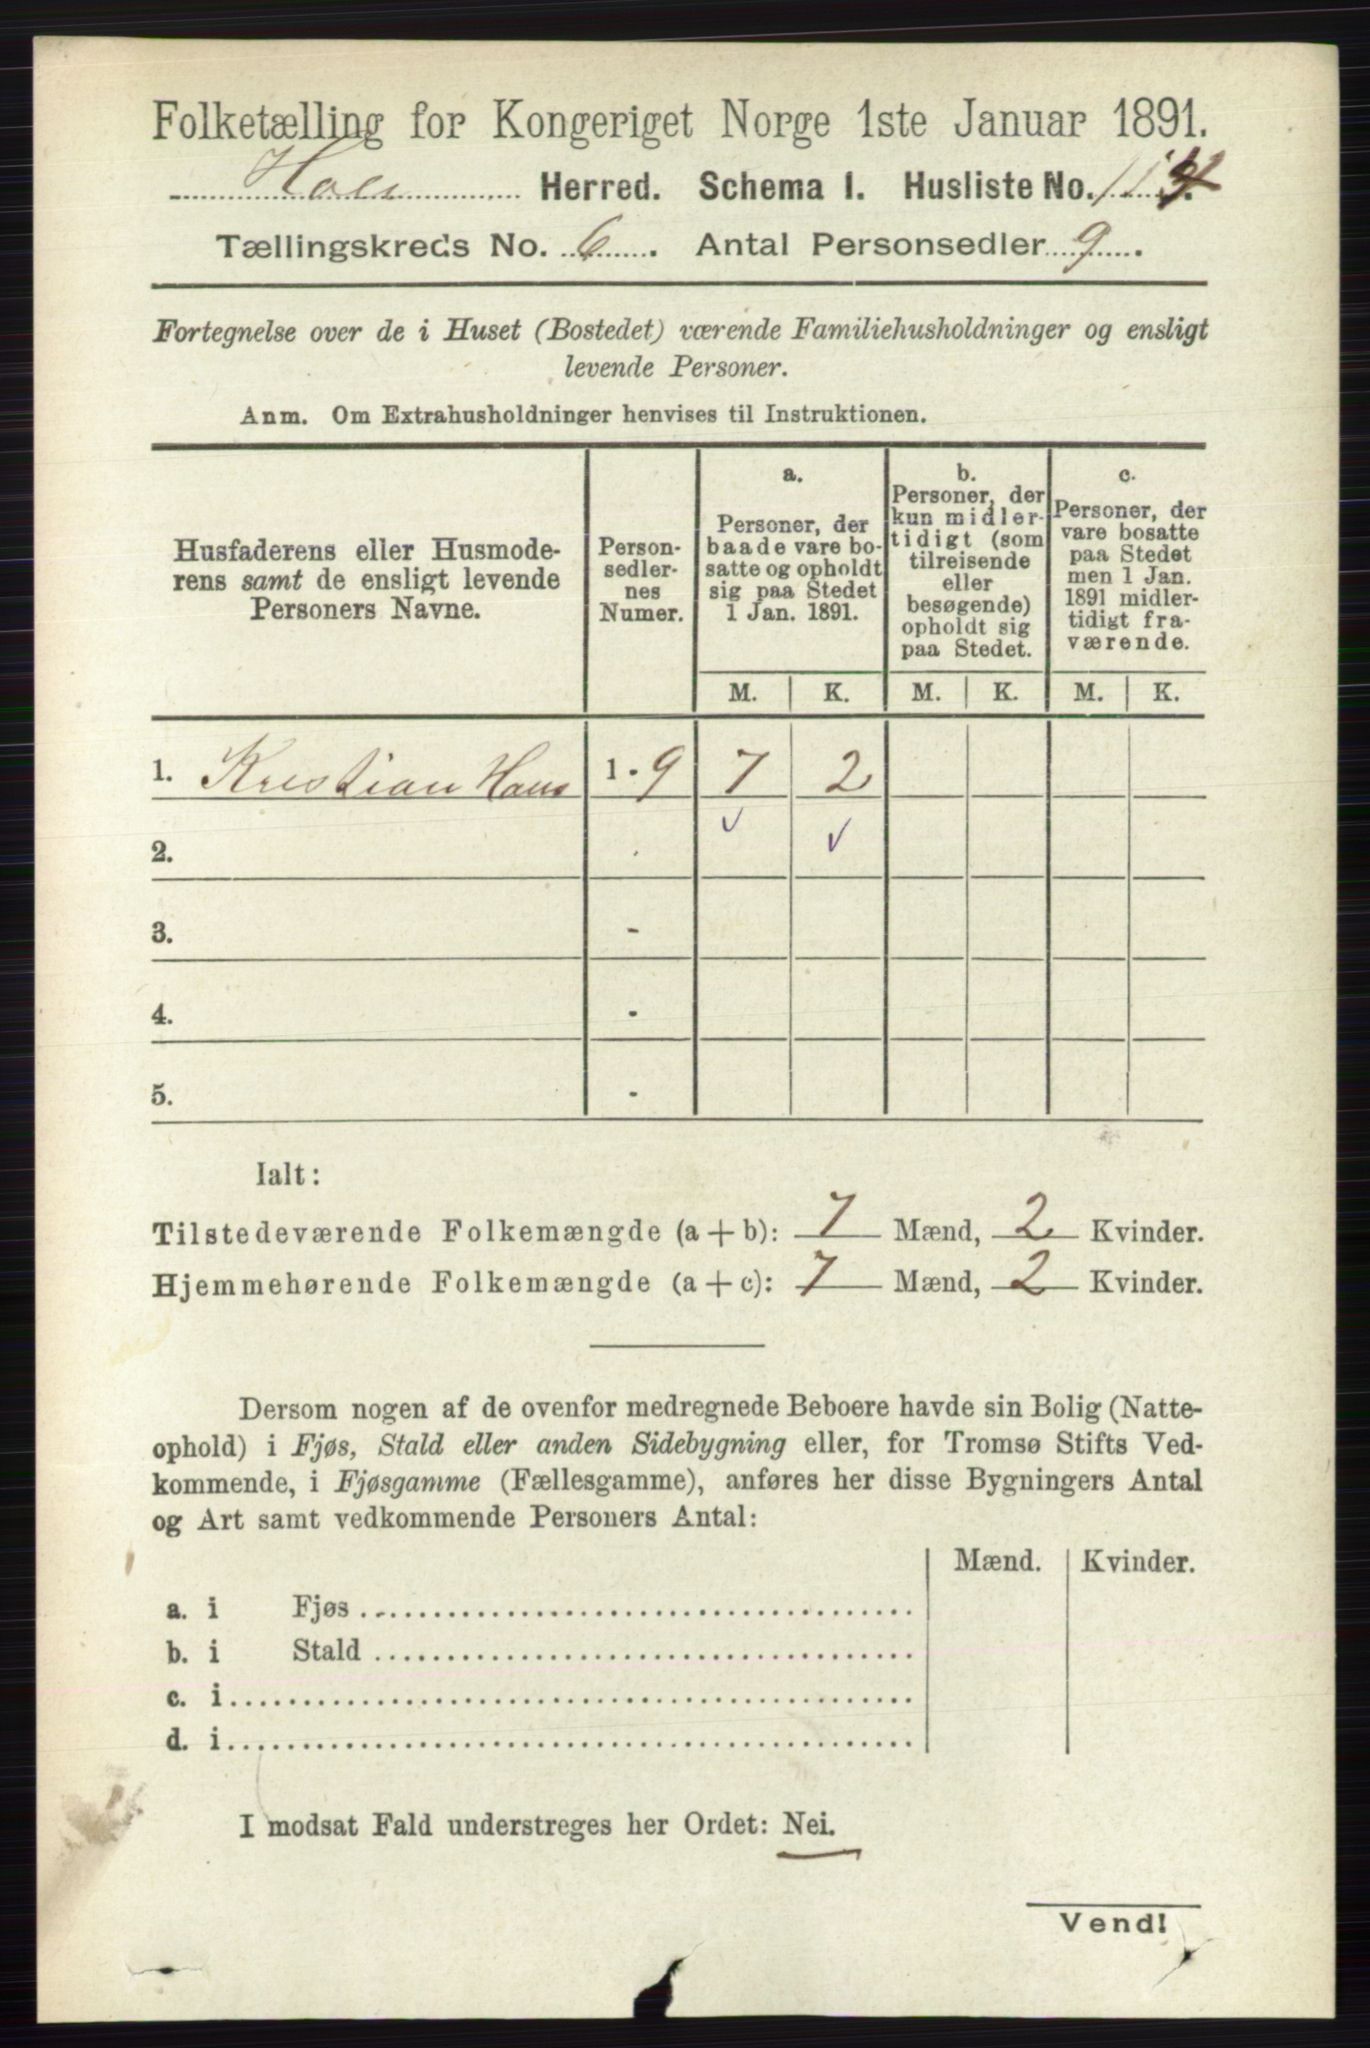 Folketælling for Kongeriget Norge 1ste Januar 1891.
Herred. Schema 1. Husliste No.
Tællingskreds No. 6. Antal Personsedler 9.
Fortegnelse over de i Huset (Bostedet) værende Familiehusholdninger og ensligt
levende Personer.
Anm. Om Extrahusholdninger henvises til Instruktionen.
Husfaderens eller Husmode-
rens samt de ensligt levende
Personers Navne.
Person-
sedler-
nes
Numer.
a.
Personer, der
baade vare bo-
satte og opholdt
sig paa Stedet
1 Jan. 1891.
b.
Personer, der
kun midler-
tidigt (som
tilreisende
eller
besøgende)
opholdt sig
paa Stedet.
c.
Personer, der
vare bosatte
paa Stedet
men 1 Jan.
1891 midler-
tidigt fra-
værende.
M. K. M. K. M. K.
1. Kristian Hans 1 - 9 7 2
2. -
3. -
4. -
5. -
Ialt:
Tilstedeværende Folkemængde (a + b): 7 Mænd, 2 Kvinder.
Hjemmehørende Folkemængde (a + c): 7 Mænd, 2 Kvinder.
Dersom nogen af de ovenfor medregnede Beboere havde sin Bolig (Natte-
ophold) i Fjøs, Stald eller anden Sidebygning eller, for Tromsø Stifts Ved-
kommende, i Fjøsgamme (Fællesgamme), anføres her disse Bygningers Antal
og Art samt vedkommende Personers Antal:
Mænd. Kvinder.
a. i Fjøs
b. i Stald
c. i
d. i
I modsat Fald understreges her Ordet: Nei.
Vend!